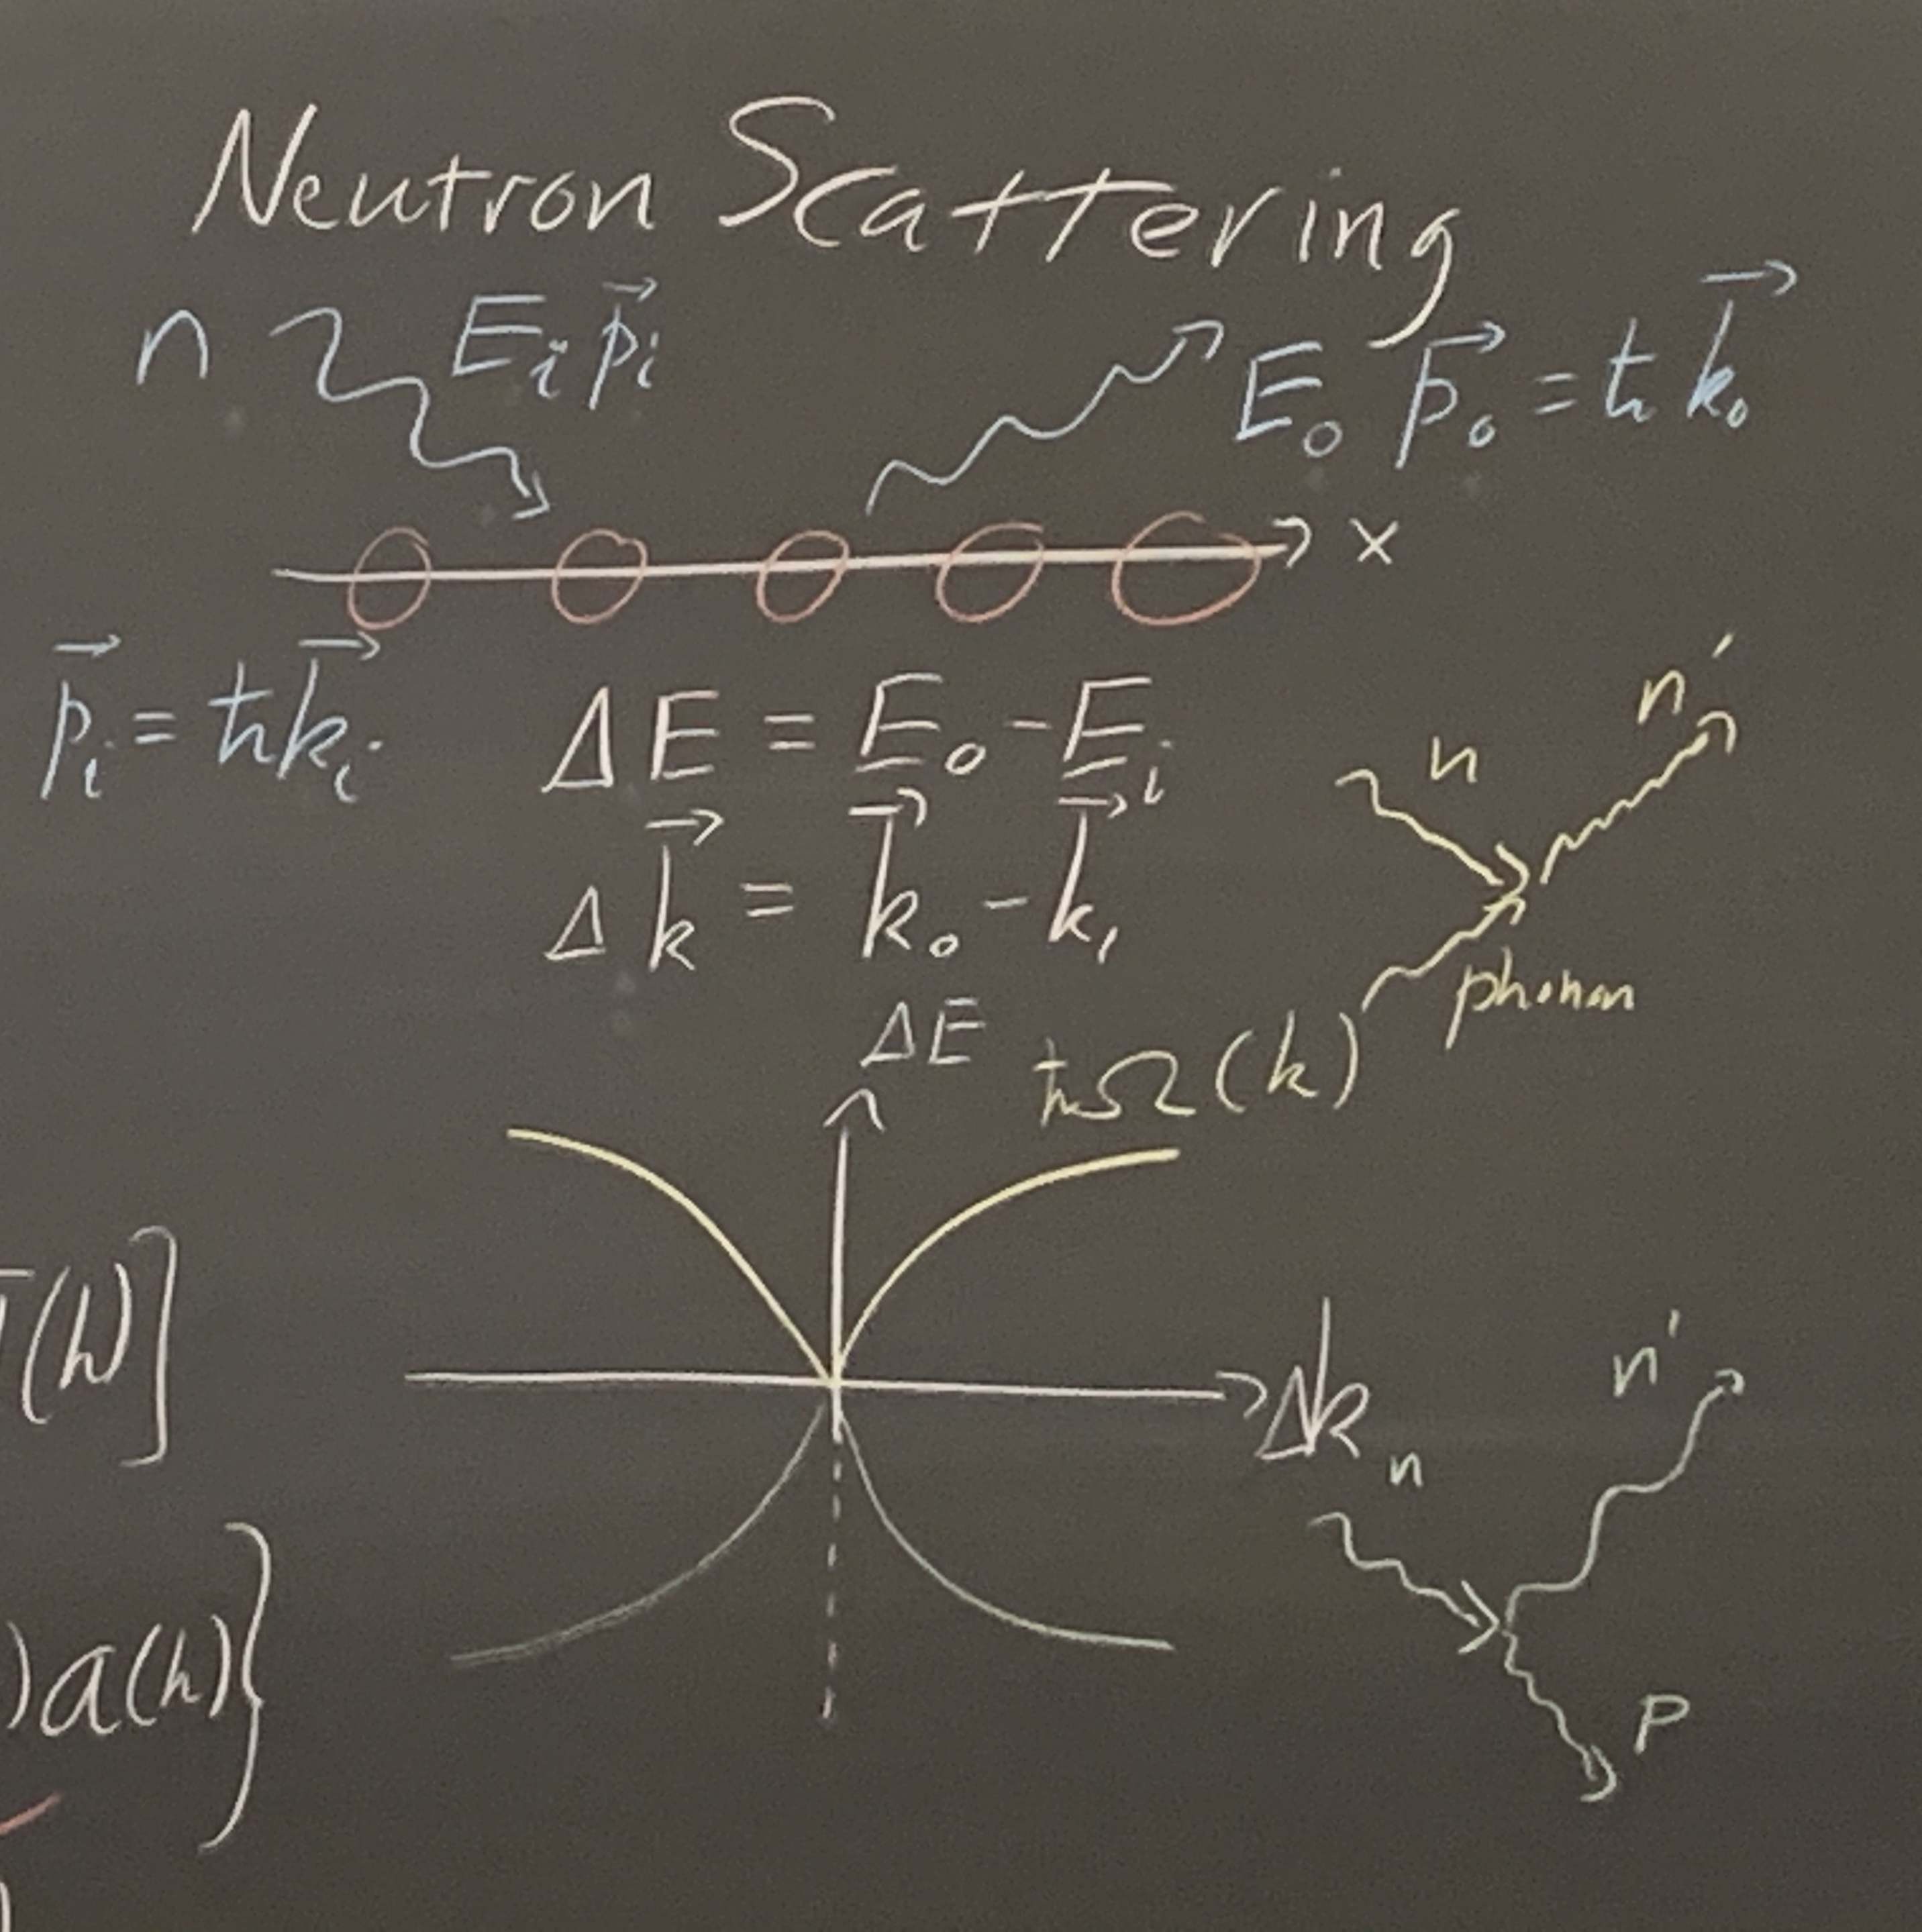 Neutron Scattering
n E⃗ᵢ p⃗ᵢ
E₀ p⃗₀ = ħk⃗₀
x
p⃗ᵢ = ħk⃗ᵢ
ΔE = E₀ - Eᵢ
n n'
Δk⃗ = k⃗₀ - k⃗ᵢ
phonon
ΔE
ħΩ(k)
(k)]
Δk
n n'
)a(k)}
P